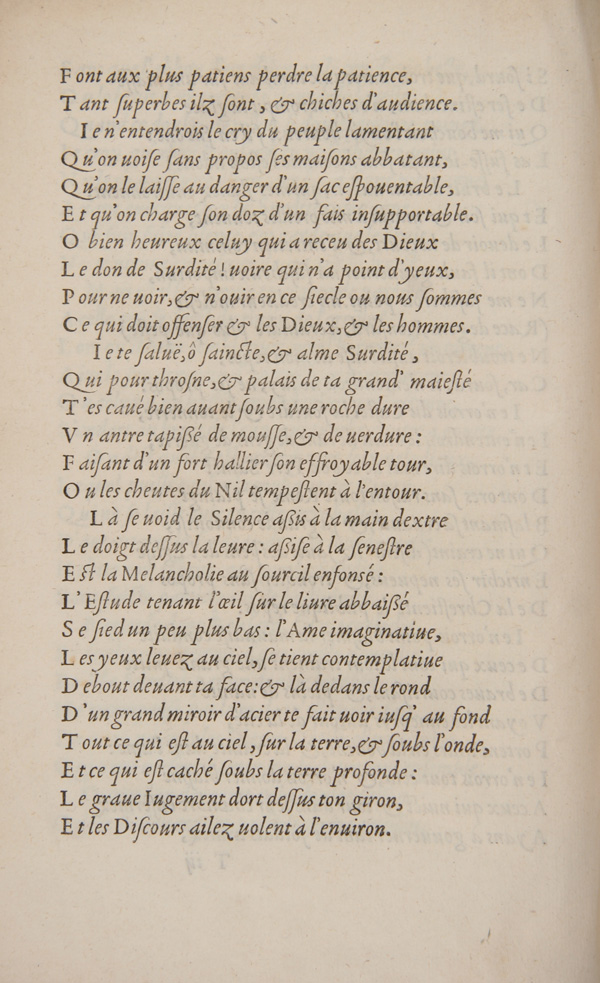 Font aux plus patiens perdre la patience,
Tant ſuperbes ilz ſont, & chiches d'audience.
Ie n'entendrois le cry du peuple lamentant
Qu'on uoiſe ſans propos ſes maiſons abbatant,
Qu'on le laiſſe au danger d'un ſac eſpouentable,
Et qu'on charge ſon doz d'un fais inſupportable.
O bien heureux celuy qui a receu des Dieux
Le don de Surdité! uoire qui n'a point d'yeux,
Pour ne uoir, & n'ouir en ce ſiecle ou nous ſommes
Ce qui doit offenſer & les Dieux, & les hommes.
Ie te ſaluë, ô ſaincte, & alme Surdité,
Qui pour throſne, & palais de ta grand' maieſté
T'es caué bien auant ſoubs une roche dure
Vn antre tapißé de mouſſe, & de uerdure:
Faiſant d'un fort hallier ſon effroyable tour,
Ou les cheutes du Nil tempeſtent à l'entour.
Là ſe uoid le Silence aßis à la main dextre
Le doigt deſſus la leure: aßiſe à la ſeneſtre
Eſt la Melancholie au ſourcil enfonsé:
L'Eſtude tenant l'œil ſur le liure abbaißé
Se ſied un peu plus bas: l'Ame imaginatiue,
Les yeux leuez au ciel, ſe tient contemplatiue
Debout deuant ta face: & là dedans le rond
D'un grand miroir d'acier te fait uoir iuſq' au fond
Tout ce qui eſt au ciel, ſur la terre, & ſoubs l'onde,
Et ce qui eſt caché ſoubs la terre profonde:
Le graue Iugement dort deſſus ton giron,
Et les Diſcours ailez uolent à l'enuiron.